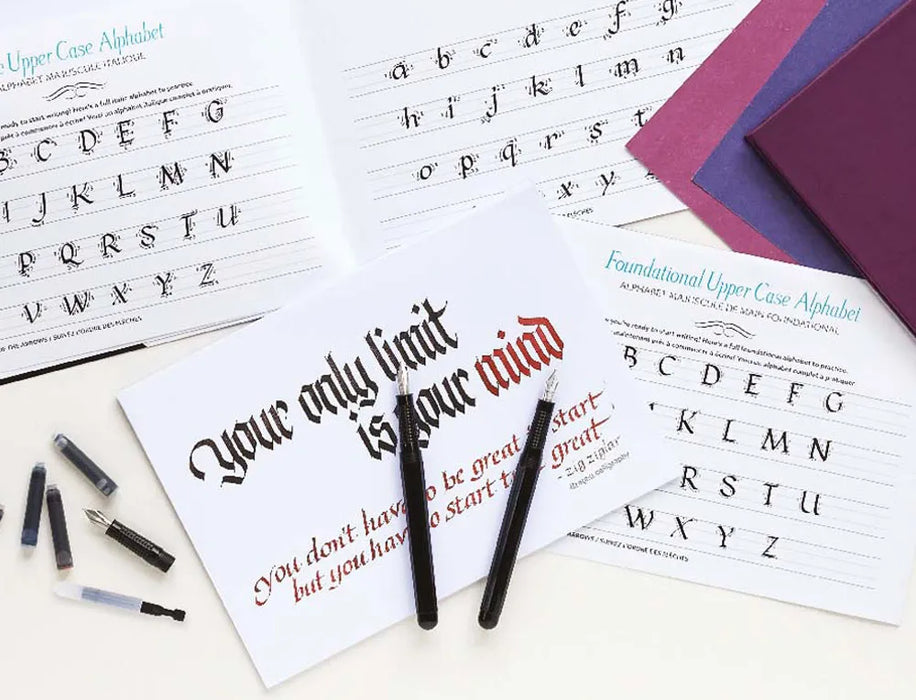 Upper Case Alphabet
ALPHABET MAJUSCULE ITALIQUE
ready to start writing! Here's a full italic alphabet to practice.
B C D E F G
I J K L M N
P Q R S T U
V W X Y Z
THE ARROWS / SUIVEZ L'ORDRE DES FLÈCHES
a b c d e f g
h i j k l m n
o p q r s t
x y z
Your only limit
is your mind
You don't have to be great to start
but you have to start to be great
- Zig Ziglar
Foundational Upper Case Alphabet
ALPHABET MAJUSCULE DE MAIN FOUNDATIONAL
you're ready to start writing! Here's a full foundational alphabet to practice.
B C D E F G
K L M N
R S T U
W X Y Z
ARROWS / SUIVEZ L'ORDRE DES FLÈCHES